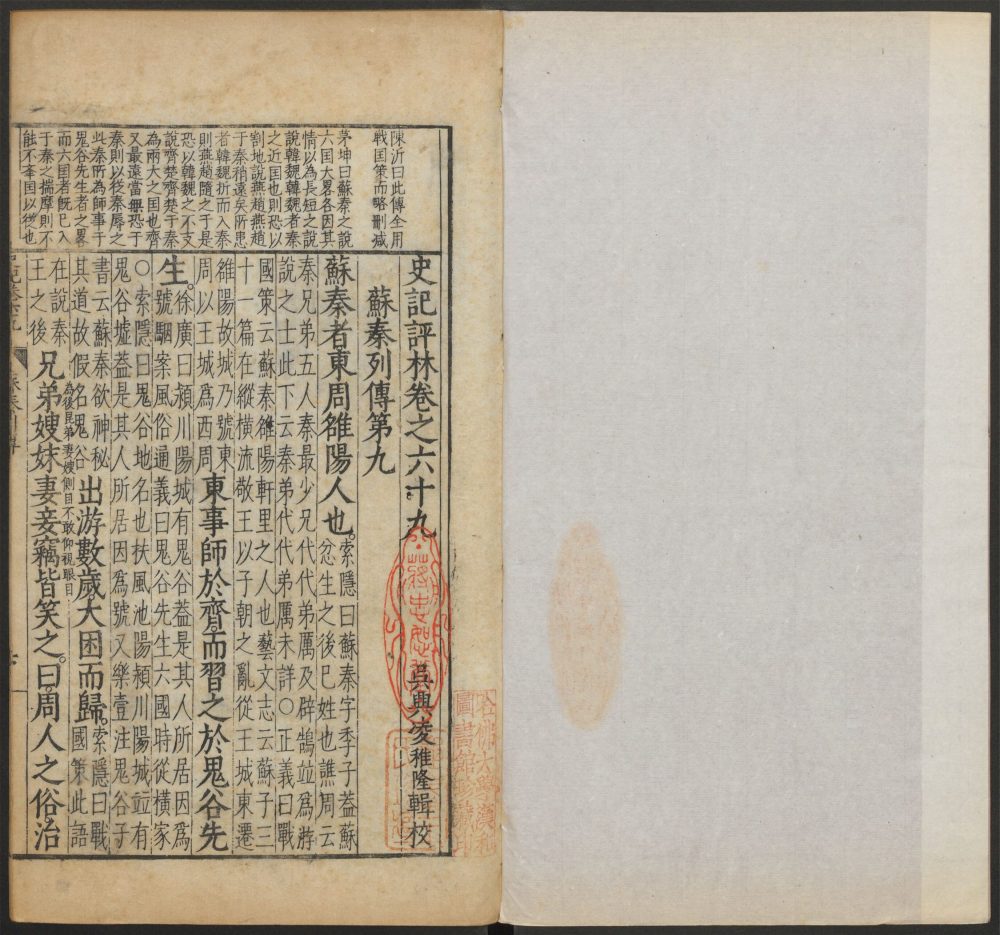 陳沂曰此傳全用
戰国策而略刪減
茅坤曰蘇秦之說
六国大畧各因其
情以為長短之說
說韓魏韓魏者秦
之近国也則恐以
割地說燕趙燕趙
于秦稍遠矣所患
者韓魏折而入秦
則燕趙隨之于是
恐以韓魏之不支
說齊楚齊楚于秦
為兩大之国也齊
又最遠當無恐于
秦則以後秦辱之
此秦所為師事于
鬼谷先生者之畧
而六国者既已入
于秦之揣摩則不
能不奉国以從也
史記評林卷之六十九
吳興凌稚隆輯校
蘇秦列傳第九
蘇秦者東周雒陽人也。
索隱曰蘇秦字季子蓋蘇
忿生之後己姓也譙周云
秦兄弟五人秦最少兄代代弟厲及辟鵠竝爲游
說之士此下云秦弟代代弟厲未詳○正義曰戰
國策云蘇秦雒陽軒里之人也藝文志云蘇子三
十一篇在縱橫流敬王以子朝之亂從王城東遷
雒陽故城乃號東
周以王城爲西周
東事師於齊。而習之於鬼谷先
生。
徐廣曰潁川陽城有鬼谷蓋是其人所居因爲
號駰案風俗通義曰鬼谷先生六國時從橫家
○索隱曰鬼谷地名也扶風池陽潁川陽城竝有
鬼谷墟蓋是其人所居因爲號又樂壹注鬼谷子
書云蘇秦欲神秘
其道故假名鬼谷
出游數歲。大困而歸。
索隱曰戰
國策此語
在說秦
王之後
為後昆弟妻嫂側目不敢仰視眼目
兄弟嫂妹妻妾竊皆笑之。曰。周人之俗治
哈佛大學漢和
圖書館珍藏印